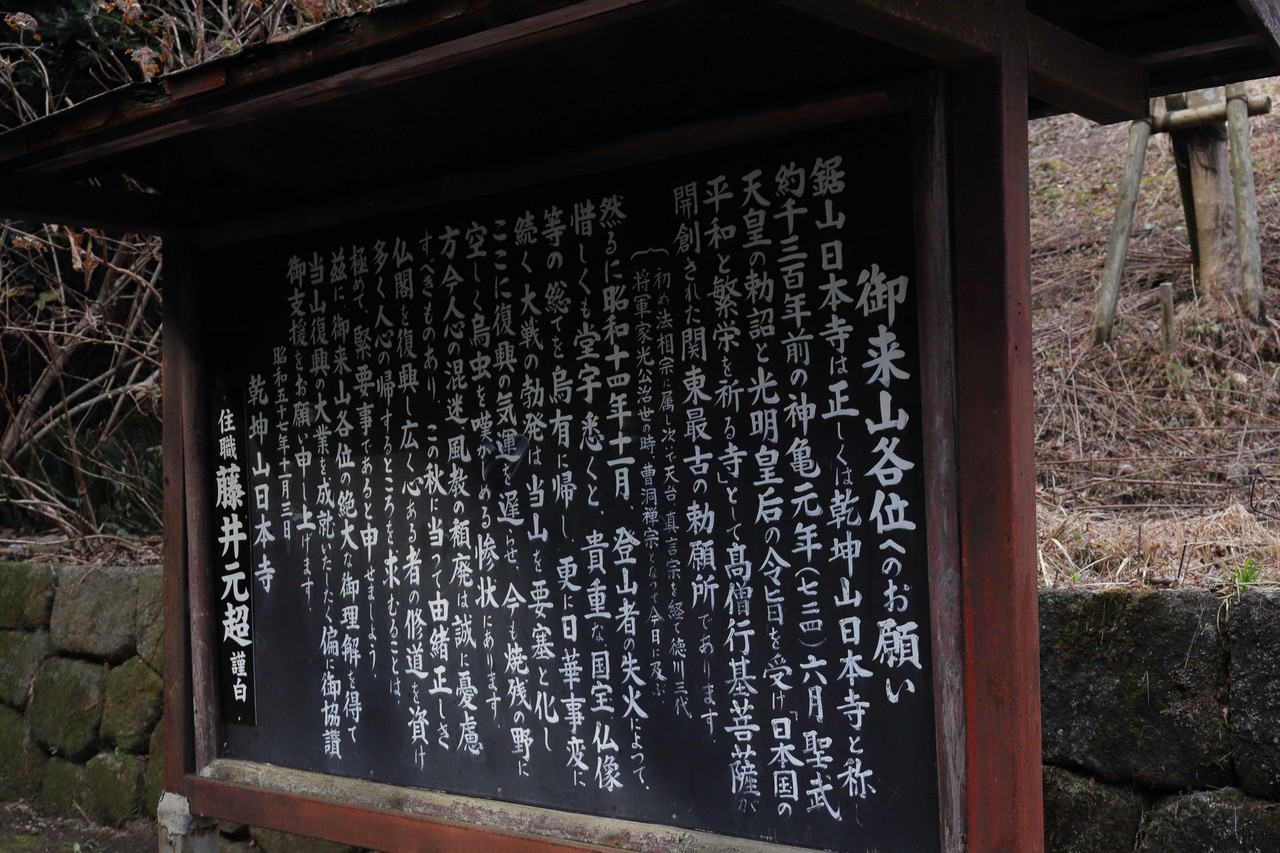 御来山各位へのお願い
鋸山日本寺は正しくは乾坤山日本寺と称し
約千三百年前の神亀元年(七二四)六月聖武
天皇の勅詔と光明皇后の令旨を受け「日本国の
平和と繁栄を祈る寺」として高僧行基菩薩が
開創された関東最古の勅願所であります。
(初め法相宗に属し次で天台、真言宗を経て徳川三代
将軍家光公治世の時、曹洞禅宗となって今日に及ぶ
然るに昭和十四年十一月、登山者の失火によって、
惜しくも堂宇悉くと、貴重な国宝仏像
等の総てを烏有に帰し更に日華事変に
続く大戦の勃発は当山を要塞と化し
ここに復興の気運を遅らせ、今も焼残の野に
空しく烏虫を嘆かしめる惨状にあります
方今人心の混迷風教の頽廃は誠に憂慮
すべきものあり、この秋に当って由緒正しき
仏閣を復興し広く心ある者の修道を資け
多く人心の帰するところを求むることは、
極めて、緊要事であると申せましよう。
茲に御来山各位の絶大な御理解を得て
当山復興の大業を成就いたしたく偏に御協讃
御支援をお願い申し上げます。
昭和五十七年十一月三日
乾坤山日本寺
住職 藤井元超 謹白